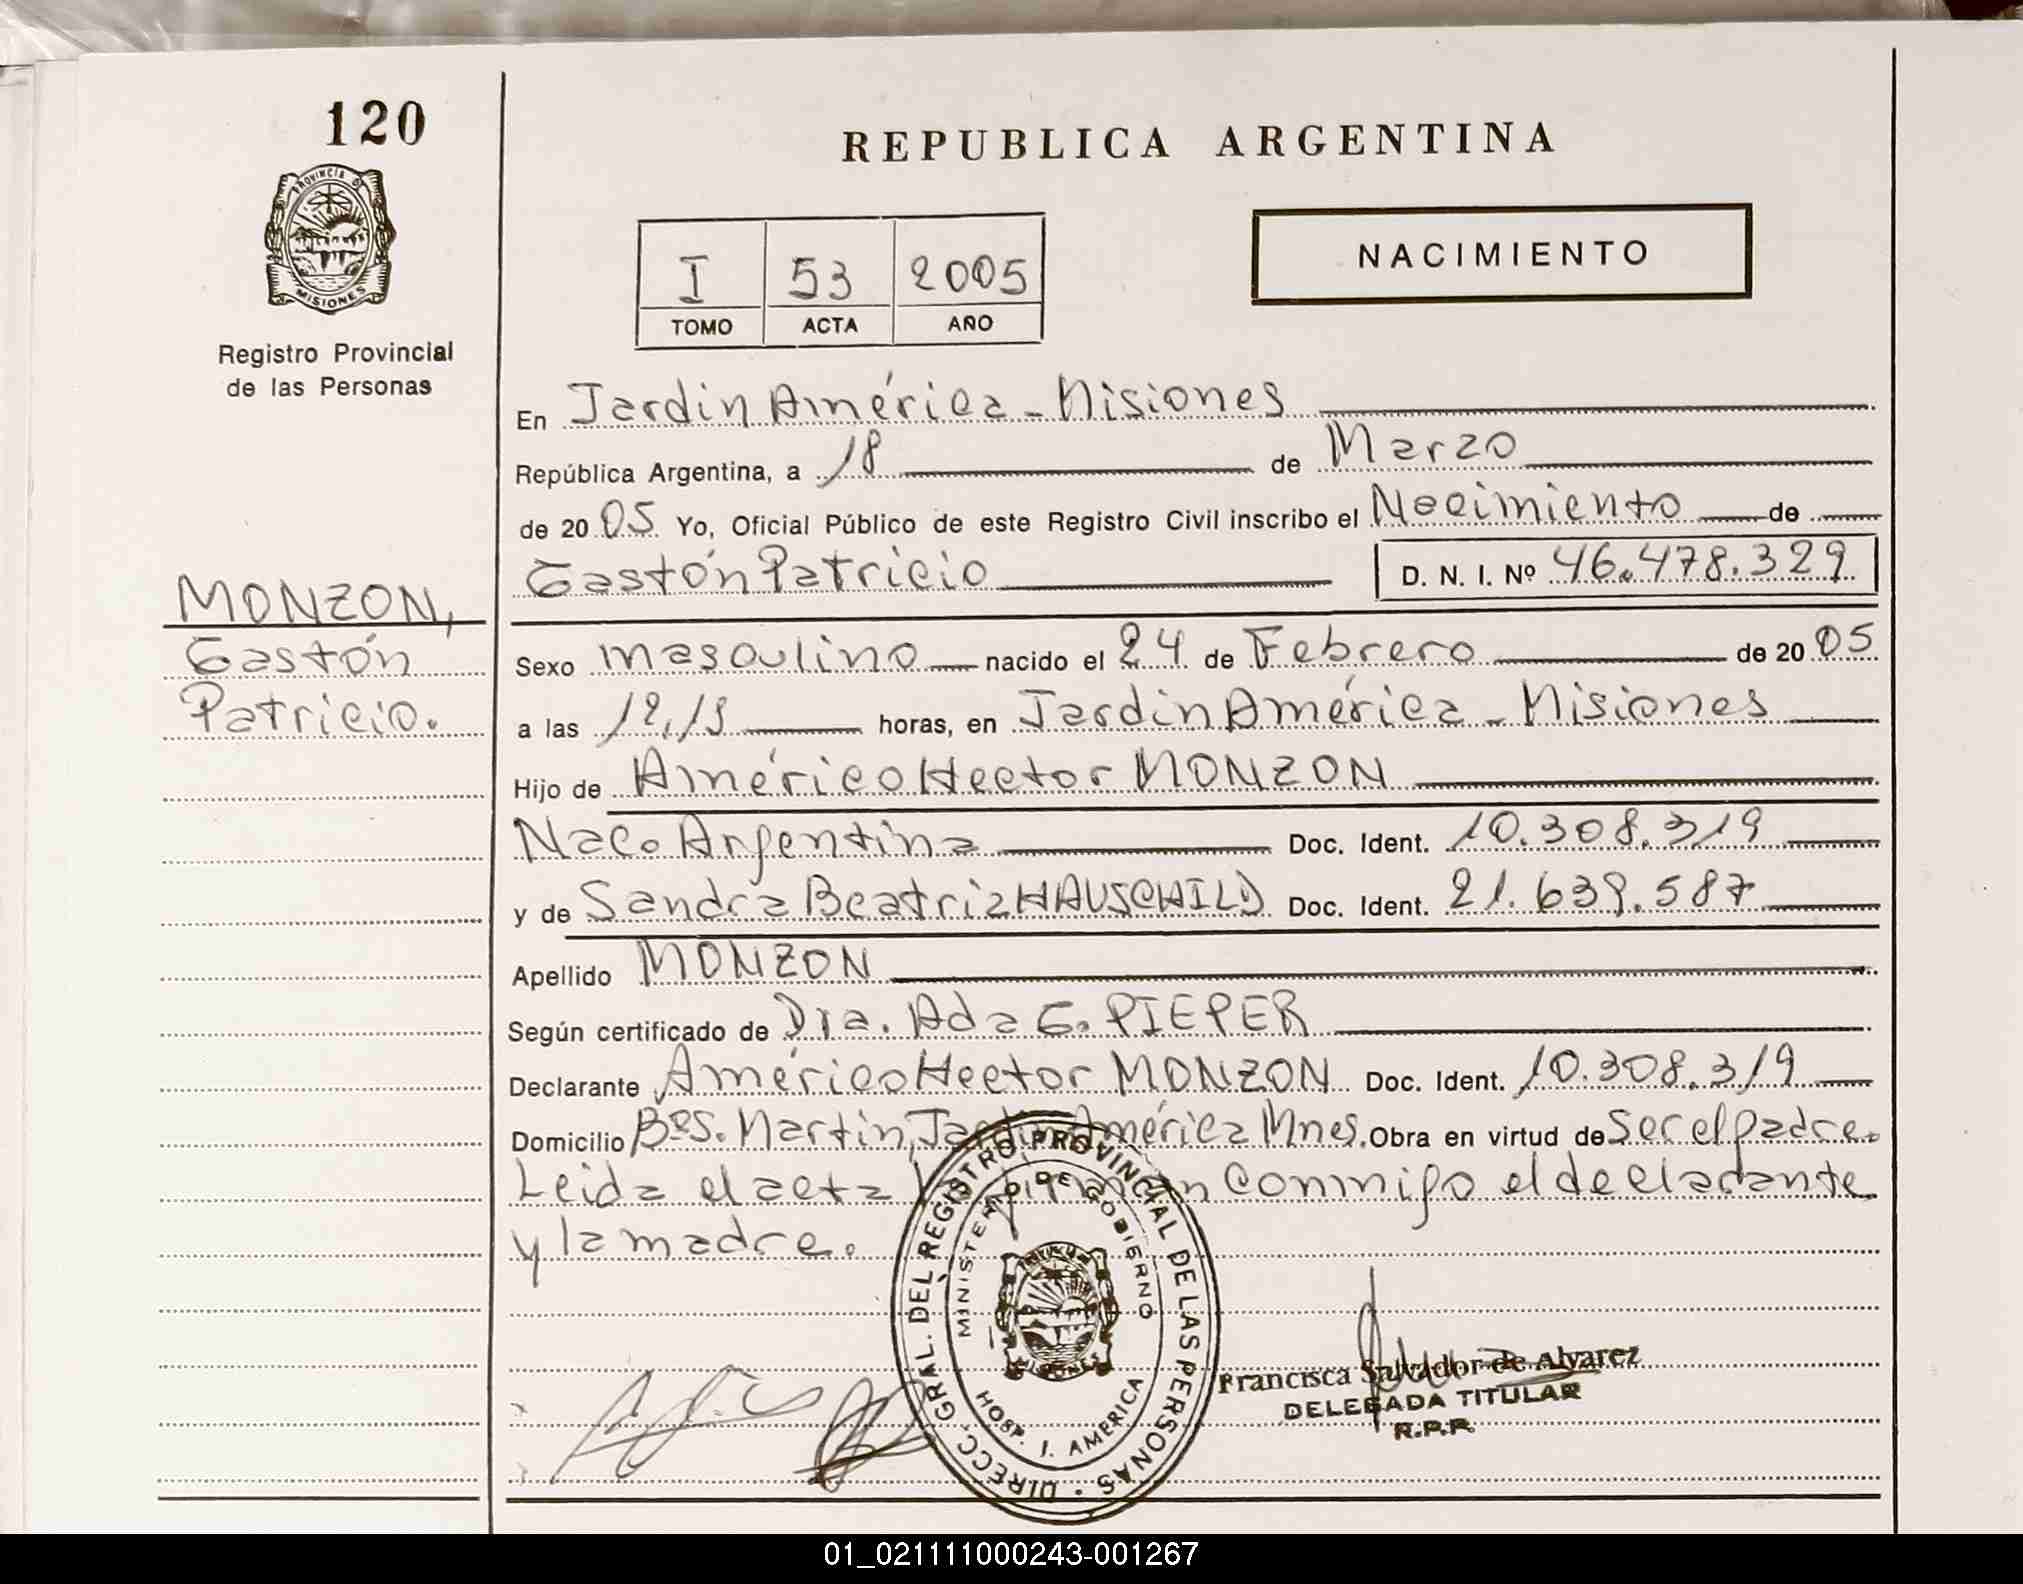 120
PROVINCIA D
MISIONES
Registro Provincial
de las Personas
MONZON,
Gastón
Patricio.
REPUBLICA ARGENTINA
I 53 2005
TOMO ACTA AÑO
NACIMIENTO
En Jardin América - Misiones
República Argentina, a 18 de Marzo
de 2005 Yo, Oficial Público de este Registro Civil inscribo el Nacimiento de
Gastón Patricio D. N. I. Nº 46.478.329
Sexo masculino nacido el 24 de Febrero de 2005
a las 12,15 horas, en Jardin América - Misiones
Hijo de Américo Hector MONZON
Nac. Argentina Doc. Ident. 10.308.319
y de Sandra Beatriz HAUSCHILD Doc. Ident. 21.639.587
Apellido MONZON
Según certificado de Dra. Ada G. PIEPER
Declarante Américo Hector MONZON Doc. Ident. 10.308.319
Domicilio Bº S. Martin, Jardin América Mnes. Obra en virtud de ser el padre.
Leida el acta la firman conmigo el declarante
y la madre.
DIRECC. GRAL. DEL REGISTRO PROVINCIAL DE LAS PERSONAS
MINISTERIO DE GOBIERNO
MISIONES
HOSP. J. AMERICA
Francisca Salvador de Alvarez
DELEGADA TITULAR
R.P.P.
01_021111000243-001267